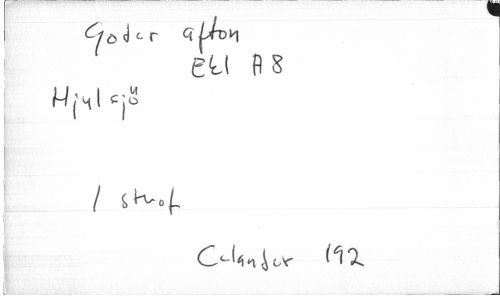 Goder afton
Ekl A 8
Hjulsjö
1 strof
Celander 192